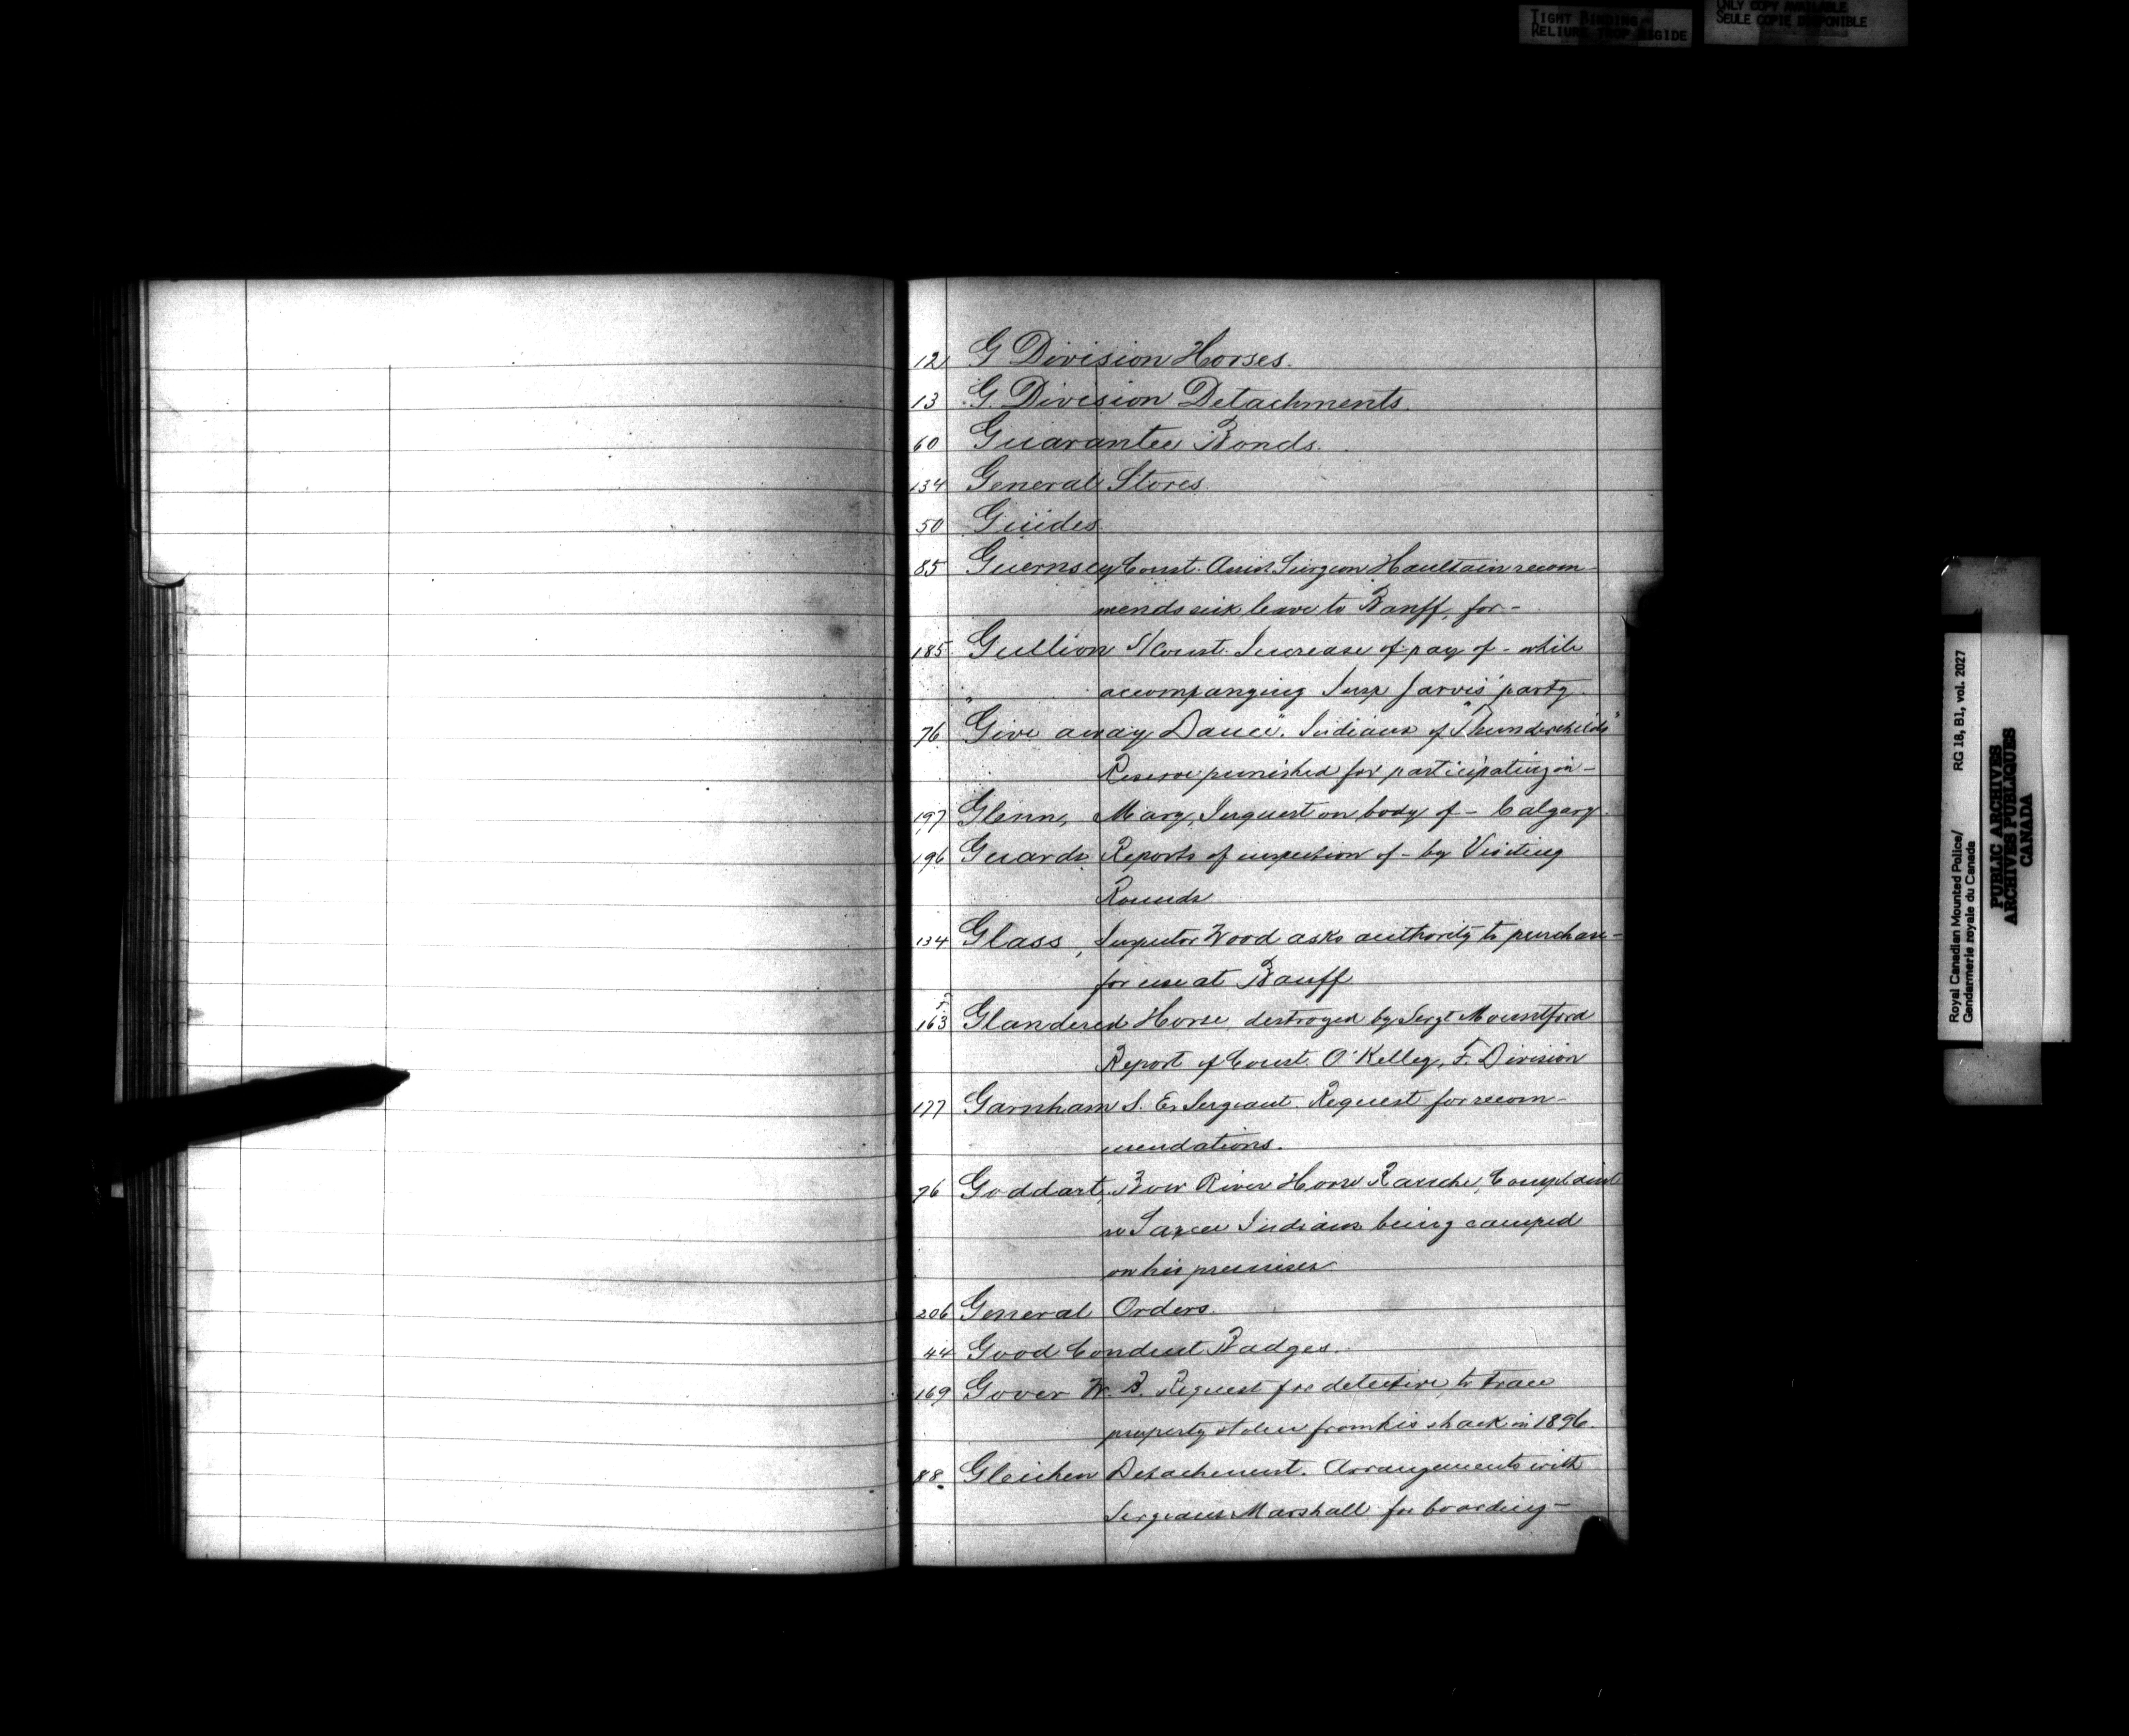 TIGHT BINDING
RELIURE TROP RIGIDE
ONLY COPY AVAILABLE
SEULE COPIE DISPONIBLE
12 G Division Horses.
13 G. Division Detachments.
60 Guarantee Bonds.
134 General Stores.
50 Guides.
85 Guernsey Const. Assist Surgeon Haultain recom-
mends sick leave to Banff, for -
185 Gullion S/Const. Increase of pay of - while
accompanying Insp Jarvis' party.
76 "Give away Dance". Indians of "Thunderchilds"
Reserve punished for participating in -
197 Glenn, Mary, Inquest on body of - Calgary.
196 Guards Reports of inspection of - by Visiting
Rounds
134 Glass, Inspector Wood asks authority to purchase -
for use at Banff
163 Glandered Horse destroyed by Sergt Mountford
Report of Const. O'Kelley, F. Division
177 Garnham S. Ex Sergeant. Request for recom-
mendations.
76 Goddart, Bow River Horse Ranche, Complaint
re Sarcee Indians being camped
on his premises.
206 General Orders.
44 Good Conduct Badges.
169 Gover W. B. Request for detective to trace
property stolen from his shack in 1896.
88 Gleichen Detachment. Arrangements with
Sergeant Marshall for boarding -
Royal Canadian Mounted Police/ RG 18, B1, vol. 2027
Gendarmerie royale du Canada
PUBLIC ARCHIVES
ARCHIVES PUBLIQUES
CANADA